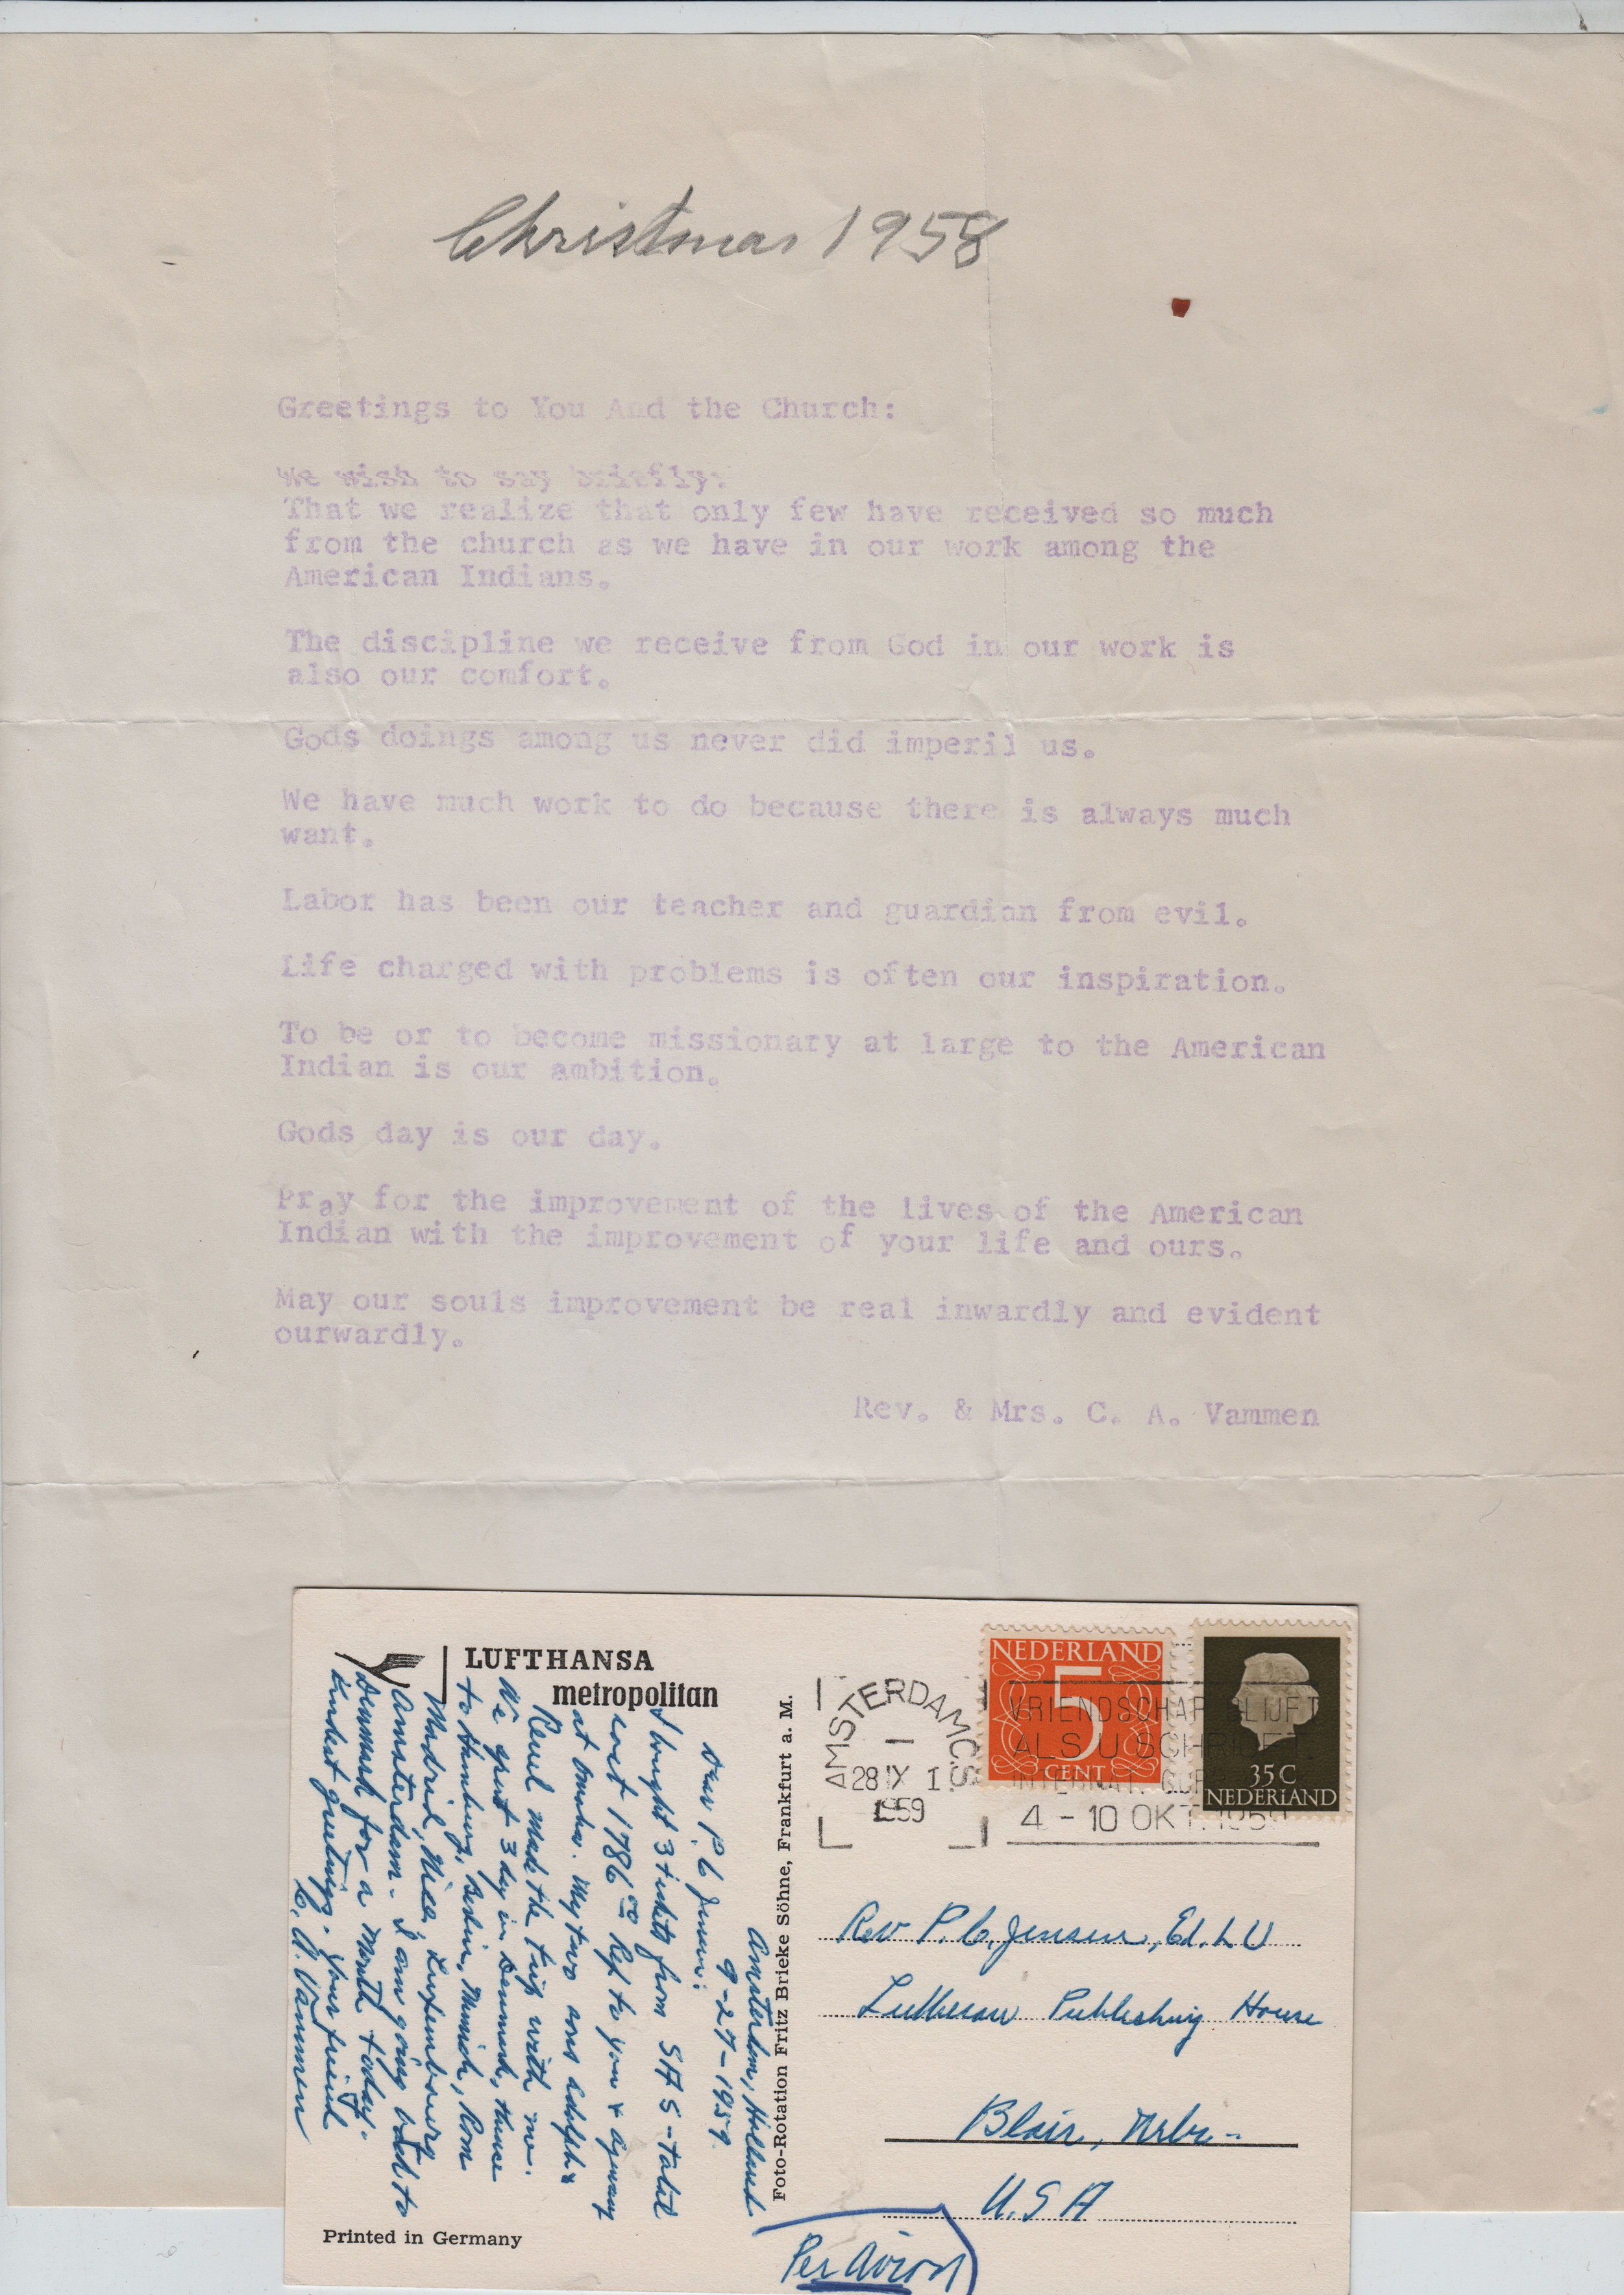 Christmas 1958
Greetings to You And the Church:
We wish to say briefly:
That we realize that only few have received so much
from the church as we have in our work among the
American Indians.
The discipline we receive from God in our work is
also our comfort.
Gods doings among us never did imperil us.
We have much work to do because there is always much
want.
Labor has been our teacher and guardian from evil.
Life charged with problems is often our inspiration.
To be or to become missionary at large to the American
Indian is our ambition.
Gods day is our day.
Pray for the improvement of the lives of the American
Indian with the improvement of your life and ours.
May our souls improvement be real inwardly and evident
ourwardly.
Rev. & Mrs. C. A. Vammen
LUFTHANSA
metropolitan
Amsterdam, Holland
9-27-1959
Dear P. C. Jensen:
I bought 3 tickets from SAS - total
cost 1786 00 Rgf to you & agency
at Omaha. My two sons Adolph &
Reuel made the trip with me.
We spent 3 day in Denmark, thence
to Hamburg, Berlin, Munich, Rom
Madrid, Nice, Luxembourg
Amsterdam. I am going back to
Denmark for a month today.
Kindest greetings. Your friend
C. A. Vammen
Printed in Germany
Foto-Rotation Fritz Brieke Söhne, Frankfurt a. M.
AMSTERDAM C.S.
28 IX 1
1959
NEDERLAND
5
CENT
35 C
NEDERLAND
VRIENDSCHAP BLIJFT
ALS U SCHRIJFT.
INTERNAT.
4 - 10 OKT. 1959
Rev P. C. Jensen, Ed. L U
Lutheran Publishing House
Blair, Nebr-
U.S.A
Per Avion